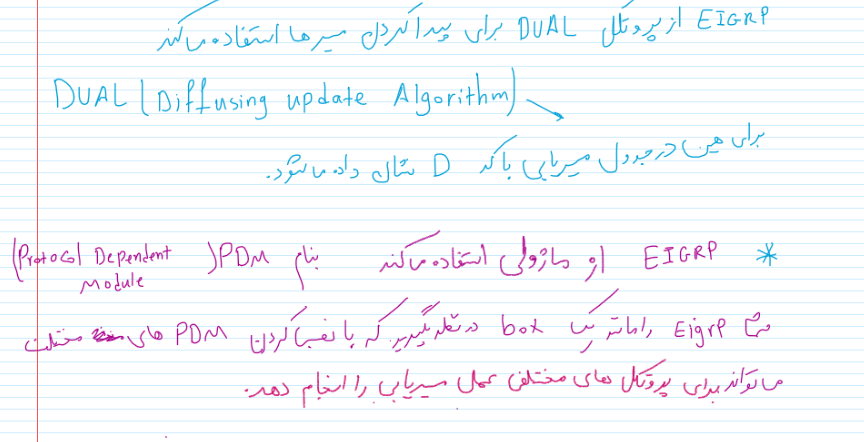 EIGRP از پروتکل DUAL برای پیدا کردن مسیرها استفاده میکند
DUAL (Diffusing update Algorithm)
برای همین در جدول مسیریابی با کد D نشان داده میشود.
* EIGRP از ماژولی استفاده میکند بنام PDM (Protocol Dependent Module)
شما Eigrp را مانند یک box در نظر بگیرید که با نصب کردن PDM های مختلف
میتواند برای پروتکل های مختلفی عمل مسیریابی را انجام دهد.